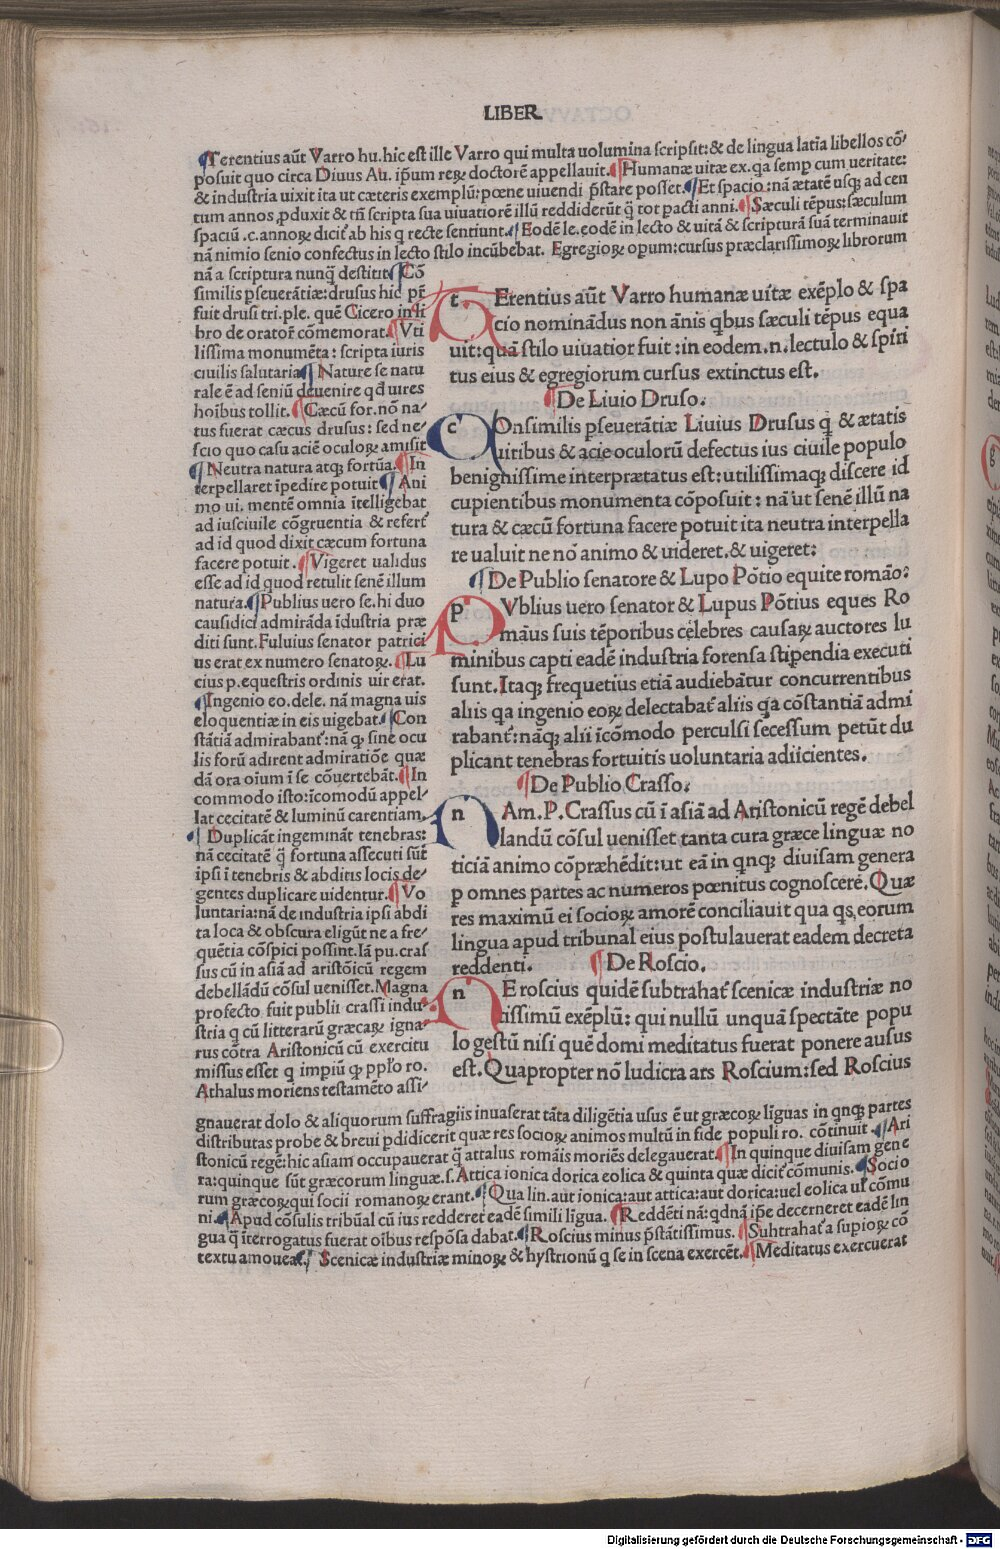 LIBER
¶Terentius aūt Varro hu.hic est ille Varro qui multa uolumina scripsit:& de lingua latīa libellos cō-
posuit quo circa Diuus Au. ip̄um reꝝ doctorē appellauit.¶Humanæ uitæ ex.qa semp cum ueritate:
& industria uixit ita ut cæteris exemplū:pœne uiuendi p̄stare posset.¶Et spacio:nā ætatē usqꝫ ad cen
tum annos ꝓduxit & tn̄ scripta sua uiuatiorē illū reddiderūt q̄ tot pacti anni.¶Sæculi tēpus:sæculum
spaciū .c.annoꝝ dicit̄ ab his q recte sentiunt.¶Eodē le.eodē in lecto & uitā & scripturā suā terminauit
nā nimio senio confectus in lecto stilo incūbebat. Egregioꝝ opum:cursus præclarissimoꝝ librorum
nā a scriptura nunq̄ destitit¶Cō
similis pseuerātiæ:drusus hic pr̄
fuit drusi tri.ple. quē Cicero in li
bro de orator̄ cōmemorat.¶Vti
lissima monumēta: scripta iuris
ciuilis salutaria¶Nature se natu
rale ē ad seniū deuenire qd̄ uires
hoībus tollit.¶Cæcū for.nō na-
tus fuerat cæcus drusus: sed ne-
scio quo casu aciē oculoꝝ amisit
¶Neutra natura atqꝫ fortūa.¶In
terpellaret īpedire potuit¶Ani
mo ui. mentē omnia ītelligebat
ad iusciuile cōgruentia & refert̄
ad id quod dixit cæcum fortuna
facere potuit. ¶Vigeret ualidus
esse ad id quod retulit senē illum
natura.¶Publius uero se.hi duo
causidici admirāda īdustria præ
diti sunt.Fuluius senator patrici
us erat ex numero senatoꝝ.¶Lu
cius p.equestris ordinis uir erat.
¶Ingenio eo.dele. nā magna uis
eloquentiæ in eis uigebat.¶Con
stātiā admirabant̄:nā ꝙ sine ocu
lis forū adirent admiratiōe quæ
dā ora oīum ī se cōuertebāt.¶In
commodo isto:īcomodū appel-
lat cecitatē & luminū carentiam.
¶Duplicāt ingemināt tenebras:
nā cecitatē q̄ fortuna assecuti sūt
ipsi ī tenebris & abditis locis de-
gentes duplicare uidentur.¶Vo
luntaria:nā de industria ipsi abdi
ta loca & obscura eligūt ne a fre-
quētia cōspici possint.Iā pu.cras
sus cū in asiā ad aristōicū regem
debellādū cōsul uenisset.Magna
profecto fuit publii crassi indu-
stria q cū litterarū græcaꝝ igna-
rus cōtra Aristonicū cū exercitu
missus esset q impiū ꝙ pp̄lo ro.
Athalus moriens testamēto assi-
tErentius aūt Varro humanæ uitæ exēplo & spa
cio nominādus non ānis qbus sæculi tēpus equa
uit:quā stilo uiuatior fuit:in eodem.n.lectulo & spiri
tus eius & egregiorum cursus extinctus est.
¶De Liuio Druso.
cOnsimilis pseuerātiæ Liuius Drusus q̄ & ætatis
uiribus & acie oculorū defectus ius ciuile populo
benignissime interprætatus est:utilissimaqꝫ discere id
cupientibus monumenta cōposuit: nā ut senē illū na
tura & cæcū fortuna facere potuit ita neutra interpella
re ualuit ne nō animo & uideret.& uigeret:
¶De Publio senatore & Lupo Pōtio equite romāo:
pVblius uero senator & Lupus Pōtius eques Ro
māus suis tēporibus celebres causaꝝ auctores lu
minibus capti eadē industria forensa stipendia executi
sunt.Itaqꝫ frequetius etiā audiebātur concurrentibus
aliis qa ingenio eoꝝ delectabat̄ aliis qa cōstantiā admi
rabant̄:nāqꝫ alii īcōmodo perculsi secessum petūt du
plicant tenebras fortuitis uoluntaria adiicientes.
¶De Publio Crasso.
nAm.P.Crassus cū ī asiā ad Aristonicū regē debel
landū cōsul uenisset tanta cura græce linguæ no
ticiā animo cōpræhēdit:ut eā in qnqꝫ diuisam genera
p omnes partes ac numeros pœnitus cognosceret. Quæ
res maximū ei socioꝝ amorē conciliauit qua qs eorum
lingua apud tribunal eius postulauerat eadem decreta
reddenti. ¶De Roscio.
nE roscius quidē subtrahat̄ scenicæ industriæ no
tissimū exēplū: qui nullū unquā spectāte popu
lo gestū nisi quē domi meditatus fuerat ponere ausus
est.Quapropter nō ludicra ars Roscium:sed Roscius
gnauerat dolo & aliquorum suffragiis inuaserat tāta diligētia usus ē ut græcoꝝ līguas in qnqꝫ partes
distributas probe & breui pdidicerit quæ res socioꝝ animos multū in fide populi ro. cōtinuit ¶Ari
stonicū regē:hic asiam occupauerat q̄ attalus romāis moriēs delegauerat.¶In quinque diuisam gene
ra:quinque sūt græcorum linguæ.s.Attica ionica dorica eolica & quinta quæ dicit̄ cōmunis.¶Socio
rum græcoꝝqui socii romanoꝝ erant.¶Qua lin.aut ionica:aut attica:aut dorica:uel eolica ul̄ cōmu
ni.¶Apud cōsulis tribūal cū ius redderet eadē simili līgua. ¶Reddēti nā:qdnā ip̄e decerneret eadē lin
gua q̄ īterrogatus fuerat oībus respōsa dabat.¶Roscius minus p̄stātissimus. ¶Subtrahat̄ a supioꝝ cō
textu amoueat̄.¶Scenicæ industriæ minoꝝ & hystrionū q se in scena exercēt.¶Meditatus exercuerat
Digitalisierung gefördert durch die Deutsche Forschungsgemeinschaft - DFG